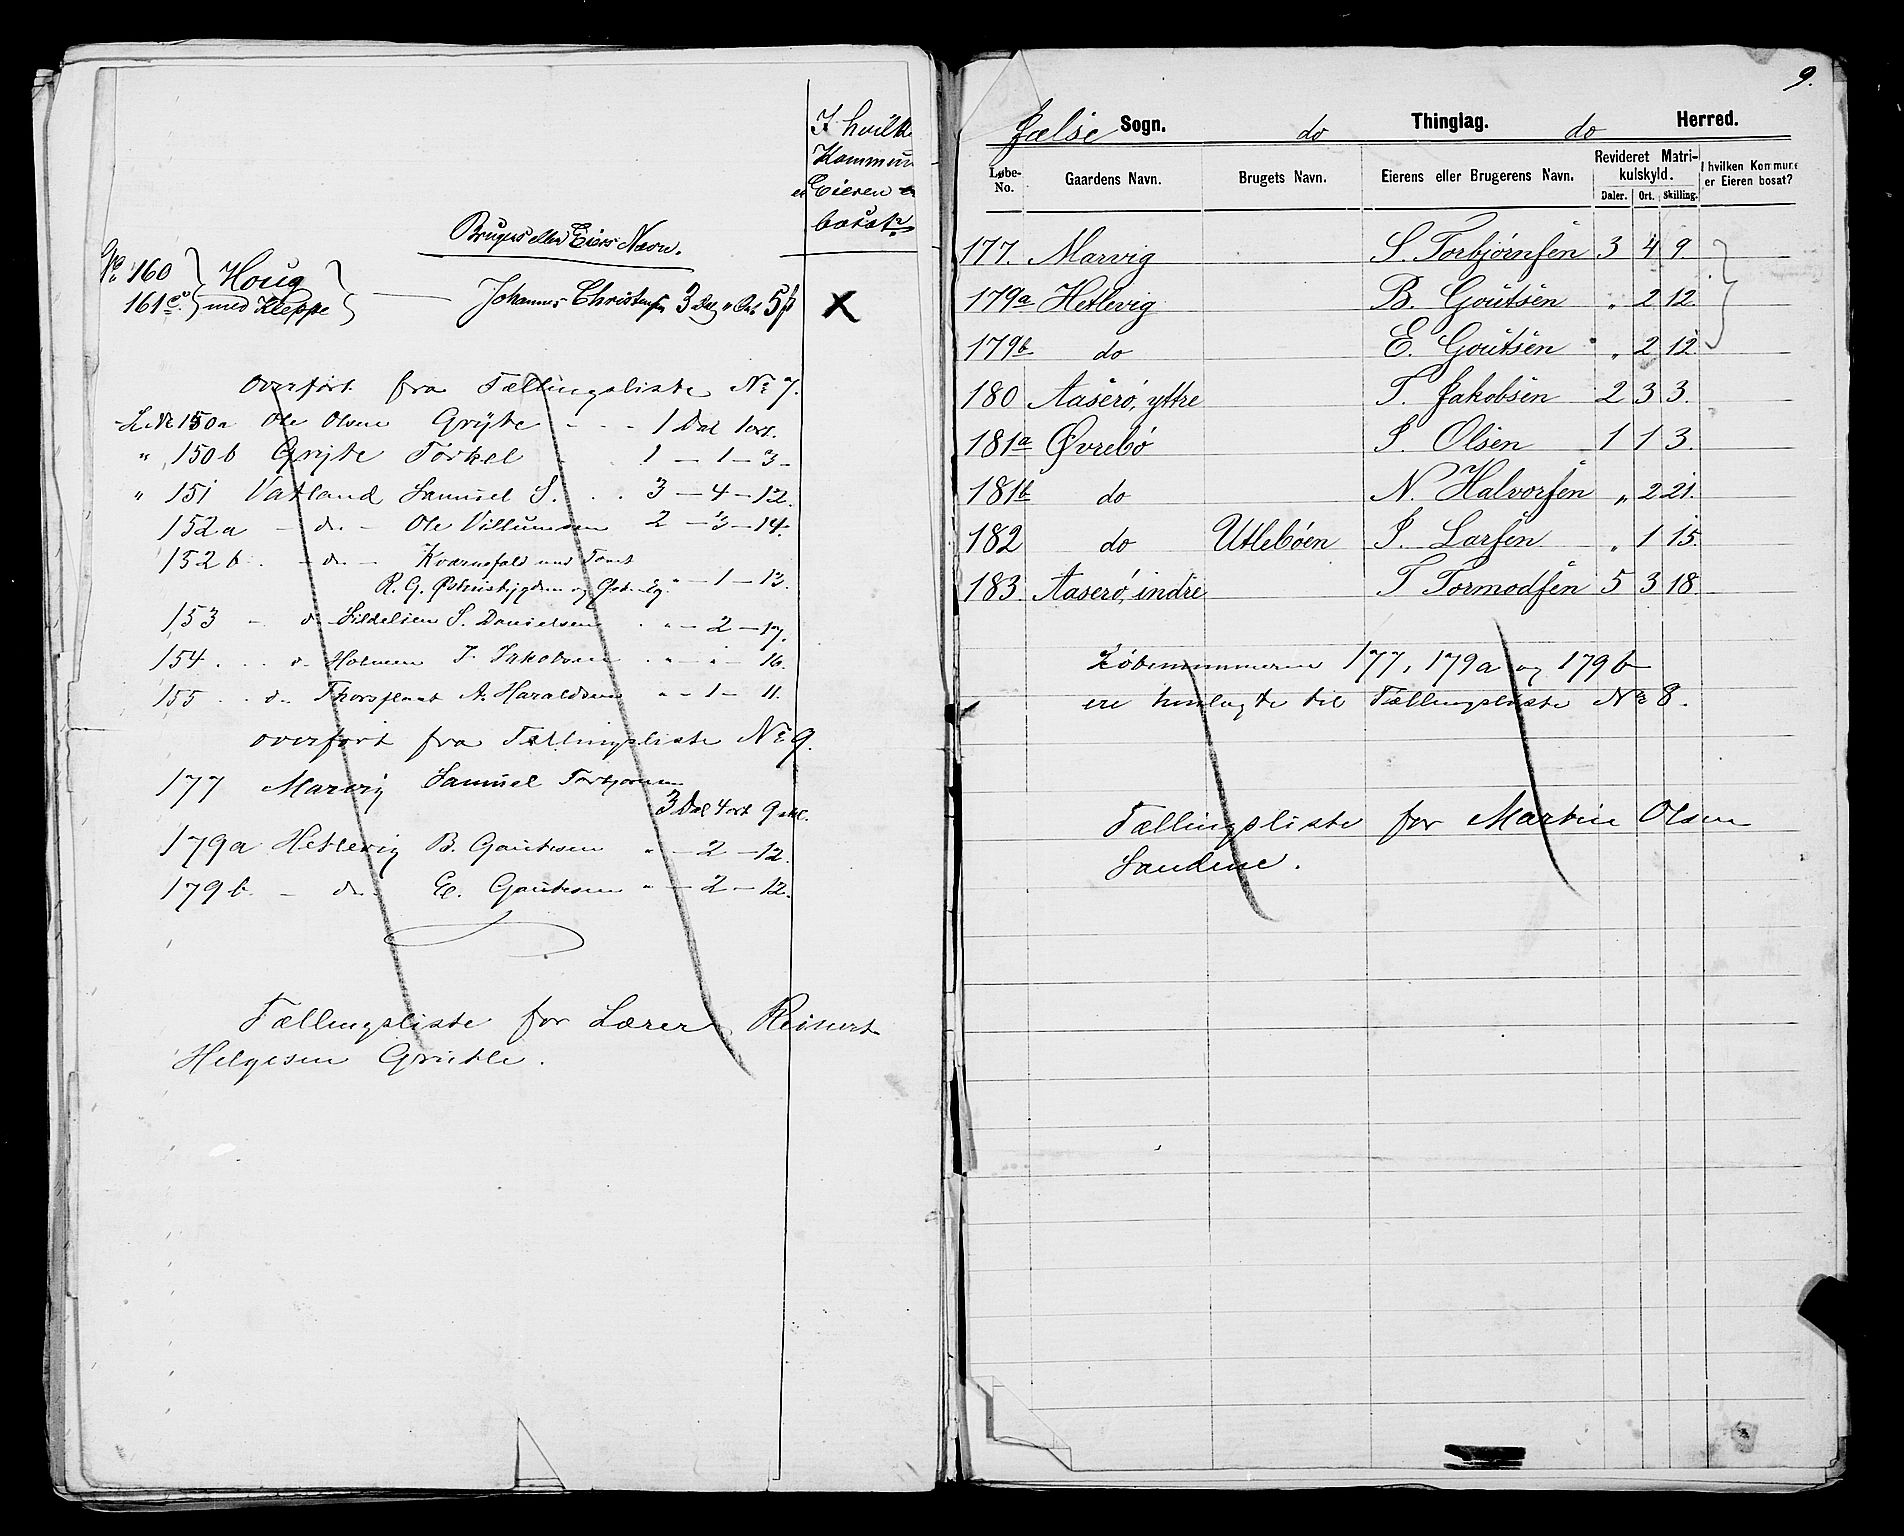 I hvilk
Kommun
er Eieren
bosat?
Bruges eller Eiers Navn.
No. 160 Houg
161c med Kleppe Johannes Christensen 3 Dal " Ort 5 ß X
Overført fra Tællingsliste No 7.
L. No 150a Ole Olsen Gryte - - - 1 Dal 1 ort.
" 150b Gryte Torkel 1 - 1 - 3 -
" 151 Vatland Samuel S. . . 3 - 4 - 12.
152a - do - Ole Villumsen 2 - 3 - 14.
152b - do - Kværnefald med Tomt
R. G. " - 1 - 13.
153 - do Lildelien S. Danielsen " - 2 - 17.
154 . . . do Holmen T. Jakobsen . " - " - 16.
155 . . do A. Haraldsen " - 1 - 11.
overført fra Tællingsliste No 9.
177 Marvig Samuel Torbjørnsen
3 Dal 4 ort 9 skl.
179a Hetlevig B. Gautesen " - 2 - 12.
179b. - do. E. Gautesen " - 2 - 12.
Tællingsliste for Lærer Reinert
Helgesen Grutle.
9.
Jælse Sogn. do Thinglag. do Herred.
Løbe-No. Gaardens Navn. Brugets Navn. Eierens eller Brugerens Navn. Revideret Matrikulskyld. I hvilken Kommune er Eieren bosat?
Daler. Ort. Skilling.
177. Marvig S. Torbjørnsen 3 4 9.
179a Hetlevig B. Goutsen " 2 12
179b do E. Goutsen " 2 12
180 Aaserø, yttre T. Jakobsen 2 3 3.
181a Øvrebø J. Olsen 1 1 3.
181b do N. Halvorsen " 2 21.
182 do Utlebøen J. Larsen " 1 15.
183. Aaserø, indre T Tormodsen 5 3 18.
Løbenummerne 177, 179a og 179b
ere henlagte til Tællingsliste No 8.
Tællingsliste for Martin Olsen
Sandene.